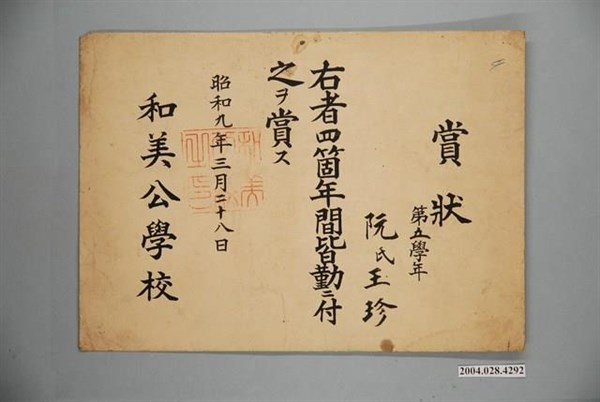 賞狀
第五學年
阮氏玉珍
右者四箇年間皆勤ニ付
之ヲ賞ス
昭和九年三月二十八日
和美公學校
2004.028.4292